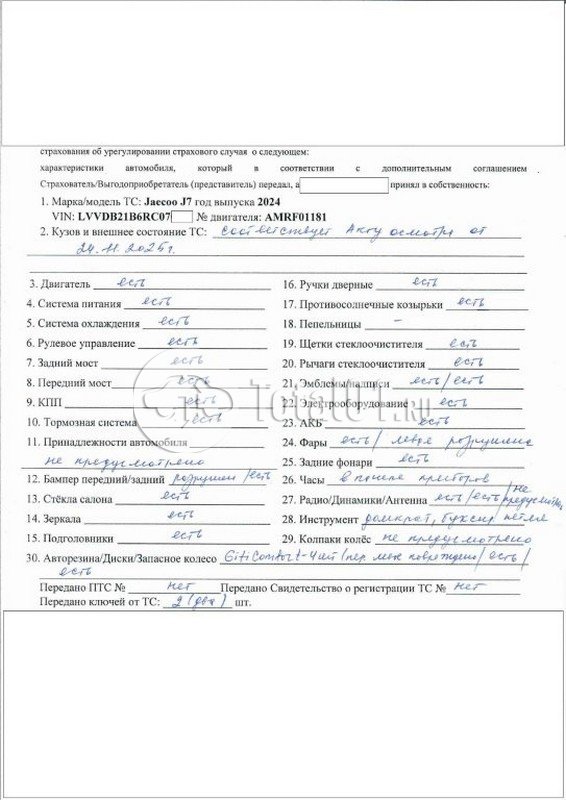 страхования об урегулировании страхового случая о следующем:
характеристики автомобиля, который в соответствии с дополнительным соглашением .
Страхователь/Выгодоприобретатель (представитель) передал, а принял в собственность:
1. Марка/модель ТС: Jaecoo J7 год выпуска 2024
VIN: LVVDB21B6RC07 № двигателя: AMRF01181
2. Кузов и внешнее состояние ТС: соответствует Акту осмотра от
24.11.2025г.
3. Двигатель есть
4. Система питания есть
5. Система охлаждения есть
6. Рулевое управление есть
7. Задний мост есть
8. Передний мост есть
9. КПП есть
10. Тормозная система есть
11. Принадлежности автомобиля
не предусмотрено
12. Бампер передний/задний разрушен/есть
13. Стёкла салона есть
14. Зеркала есть
15. Подголовники есть
16. Ручки дверные есть
17. Противосолнечные козырьки есть
18. Пепельницы –
19. Щетки стеклоочистителя есть
20. Рычаги стеклоочистителя есть
21. Эмблемы/надписи есть/есть
22. Электрооборудование есть
23. АКБ есть
24. Фары есть/левая разрушена
25. Задние фонари есть
26. Часы в панели приборов
27. Радио/Динамики/Антенна есть/есть/не предусмотр
28. Инструмент домкрат, буксир петля
29. Колпаки колёс не предусмотрено
30. Авторезина/Диски/Запасное колесо GitiComfort-4шт/пер лев повреждено/есть/
есть
Передано ПТС № нет Передано Свидетельство о регистрации ТС № нет
Передано ключей от ТС: 2 (два) шт.
Total01.ru